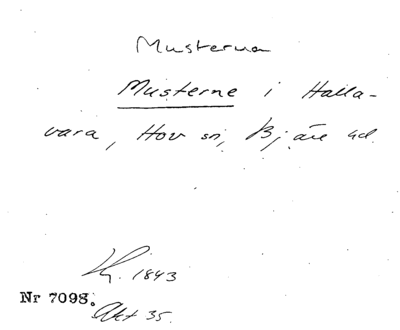 Musterna
Musterne i Halla-
vara, Hov sn, Bjäre hd.
1843
Nr 7098.
Akt 35.